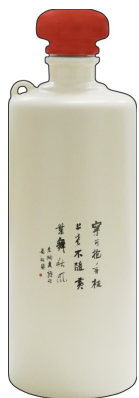 寧可抱香枝
上老不隨黄
葉舞秋風